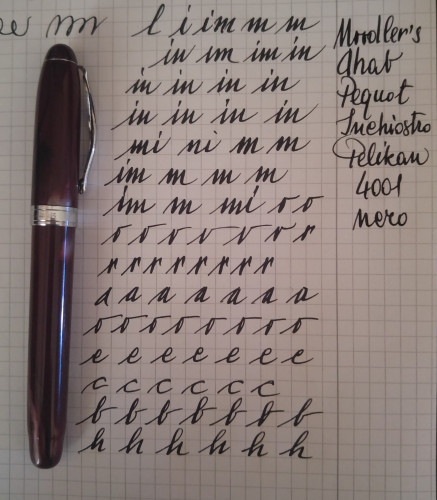 l i im m m
in im im in
in in in in
in in in in
mi ni m m
im m m m
im m mi o o
o o v v v o r
r r r r r r r r
a a a a a a a
o o o o o o o o
e e e e e e e
c c c c c c
b b b b b b b
h h h h h h
Noodler's
Ahab
Pequot
Inchiostro
Pelikan
4001
nero